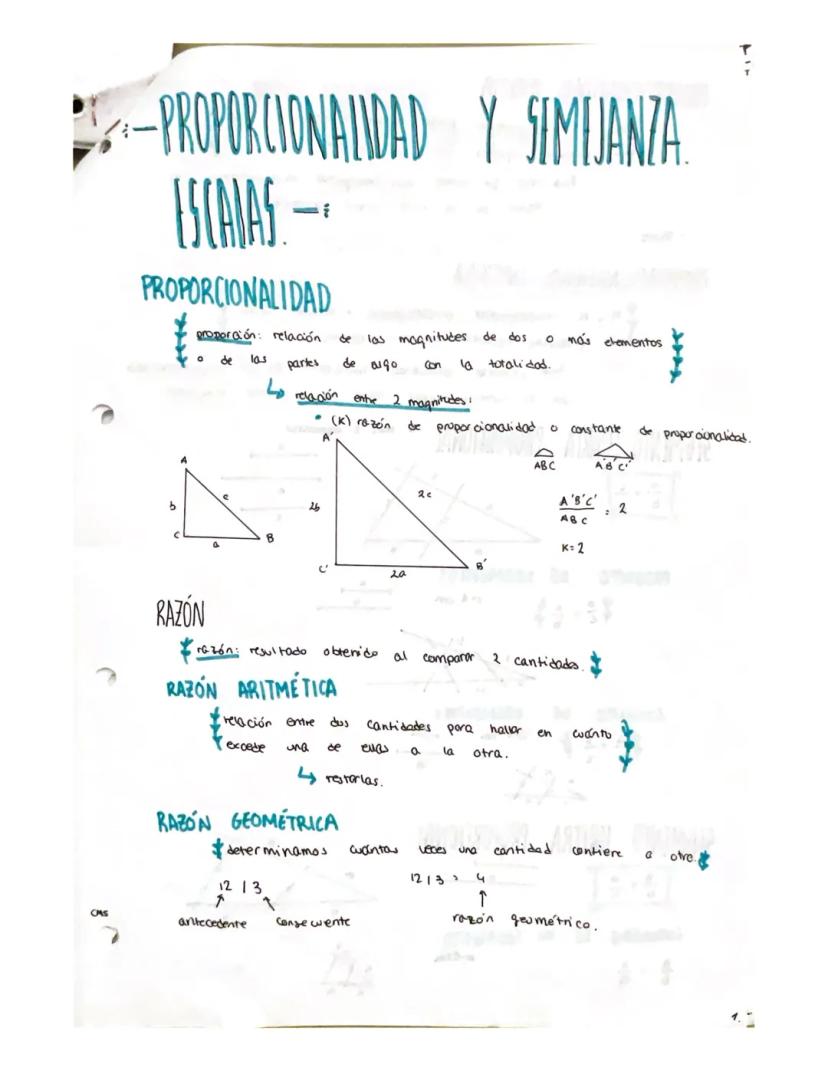 :-PROPORCIONALIDAD Y SEMEJANZA.
ESCALAS.-:
PROPORCIONALIDAD
proporción: relación de las magnitudes de dos o más elementos
o de las partes de algo con la totalidad.
↳ relación entre 2 magnitudes:
• (K) razón de proporcionalidad o constante de proporcionalidad.
A
b
c
C
a
B
A'
2b
2c
C'
2a
B'
ABC A'B'C'
A'B'C'
ABC
= 2
K=2
RAZÓN
razón: resultado obtenido al comparar 2 cantidades.
RAZÓN ARITMÉTICA
relación entre dos cantidades para hallar en cuánto
excede una de ellas a la otra.
↳ restarlas.
RAZÓN GEOMÉTRICA
determinamos cuántas veces una cantidad contiene a otra.
12 | 3
12 | 3 = 4
antecedente consecuente
razón geométrico.
CMS
1.